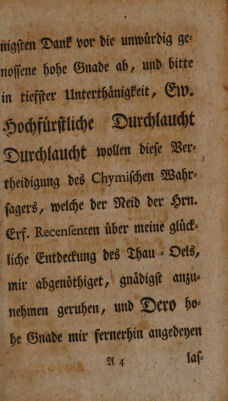 nigsten Dank vor die unwürdig ge-
nossene hohe Gnade ab, und bitte
in tiefster Unterthänigkeit, Ew.
Hochfürstliche Durchlaucht
Durchlaucht wollen diese Ver-
theidigung des Chymischen Wahr-
sagers, welche der Neid der Hrn.
Erf. Recensenten über meine glück-
liche Entdeckung des Thau-Oels,
mir abgenöthiget, gnädigst anzu-
nehmen geruhen, und Dero ho-
he Gnade mir fernerhin angedeyen
A 4 las-